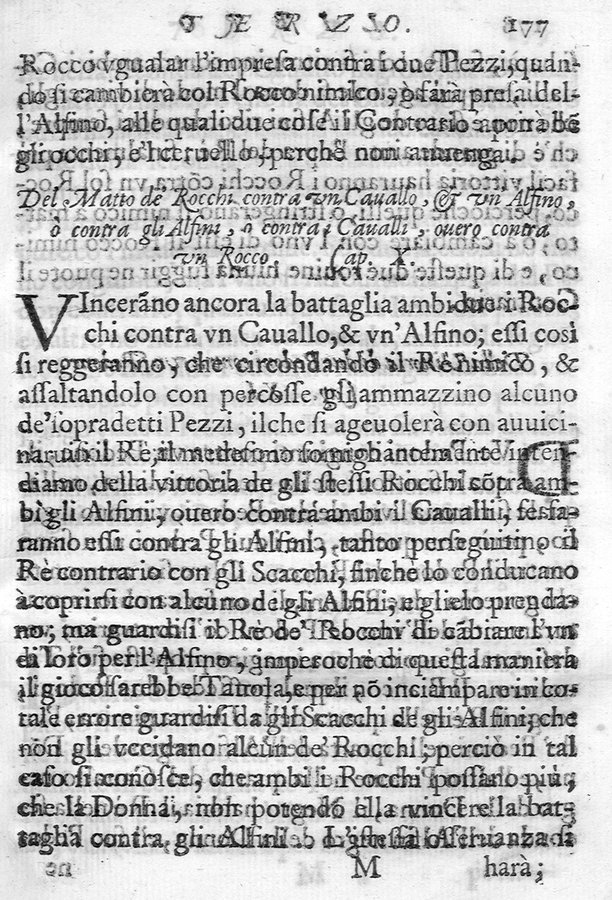 TERZO. 177
Rocco vgualar l'impresa contra i due Pezzi, quan-
do si cambierà col Rocco nimico, o sarà presa del-
l'Alfino, alle quali due cose il Contrario aporrà bē
gli occhi, e'l ceruello, perche non auuenga.
Del Matto de' Rocchi contra vn Cauallo, & vn Alfino,
ò contra gli Alfini, o contra i Caualli, ouero contra
vn Rocco. Cap. X.
VIncerāno ancora la battaglia ambidue i Roc-
chi contra vn Cauallo, & vn'Alfino; essi così
si reggeranno, che circondando il Re nimico, &
assaltandolo con percosse gli ammazzino alcuno
de'sopradetti Pezzi, ilche si ageuolerà con auuici-
naruisi il Rè, il medesimo somigliantemente inten-
diamo della vittoria de gli stessi Rocchi cōtra am-
bi gli Alfini, ouero contra ambi i Caualli, se sa-
ranno essi contra gli Alfini, tanto perseguitino il
Rè contrario con gli Scacchi, finche lo conducano
à coprirsi con alcuno de gli Alfini, e glielo prenda-
no; ma guardisi il Rè de' Rocchi di cābiare l'vn
di loro per l'Alfino, imperoche di questa maniera
il gioco sarebbe Tauola, e per nō inciāpare in co-
tale errore guardisi da gli Scacchi de gli Alfini, che
non gli vccidano alcun de' Rocchi, perciò in tal
caso si conosce, che ambi i Rocchi possano più,
che la Donna, non potendo ella vincere la bat-
taglia contra gli Alfini. L'istessa osseruanza si
M harà;